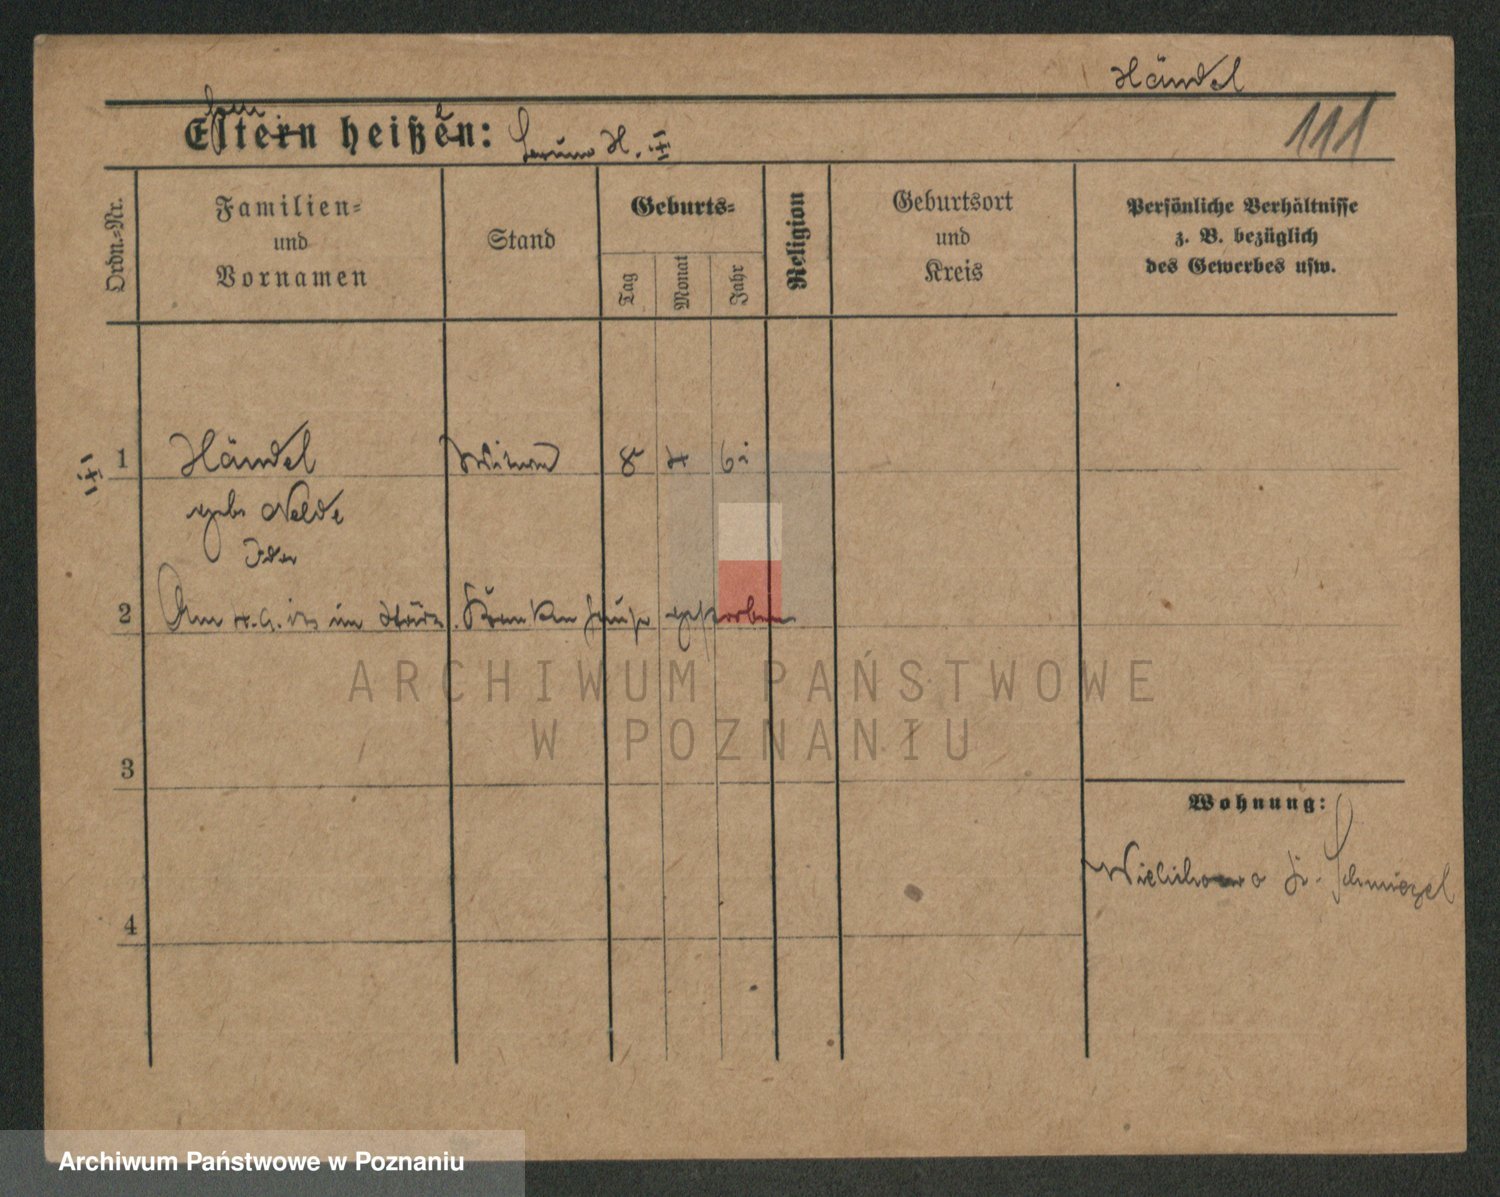 Händel
Eltern heißen: H.
111
Ordn.=Nr.
Familien=
und
Vornamen
Stand
Geburts=
Tag
Monat
Jahr
Religion
Geburtsort
und
Kreis
Persönliche Verhältnisse
z. B. bezüglich
des Gewerbes usw.
1 Händel Witwe 8 4
geb. Nelde
Ida
2 Am im städt. Krankenhause gestorben
3
4
Wohnung:
Wielichowo Kr. Schmiegel
ARCHIWUM PAŃSTWOWE
W POZNANIU
Archiwum Państwowe w Poznaniu